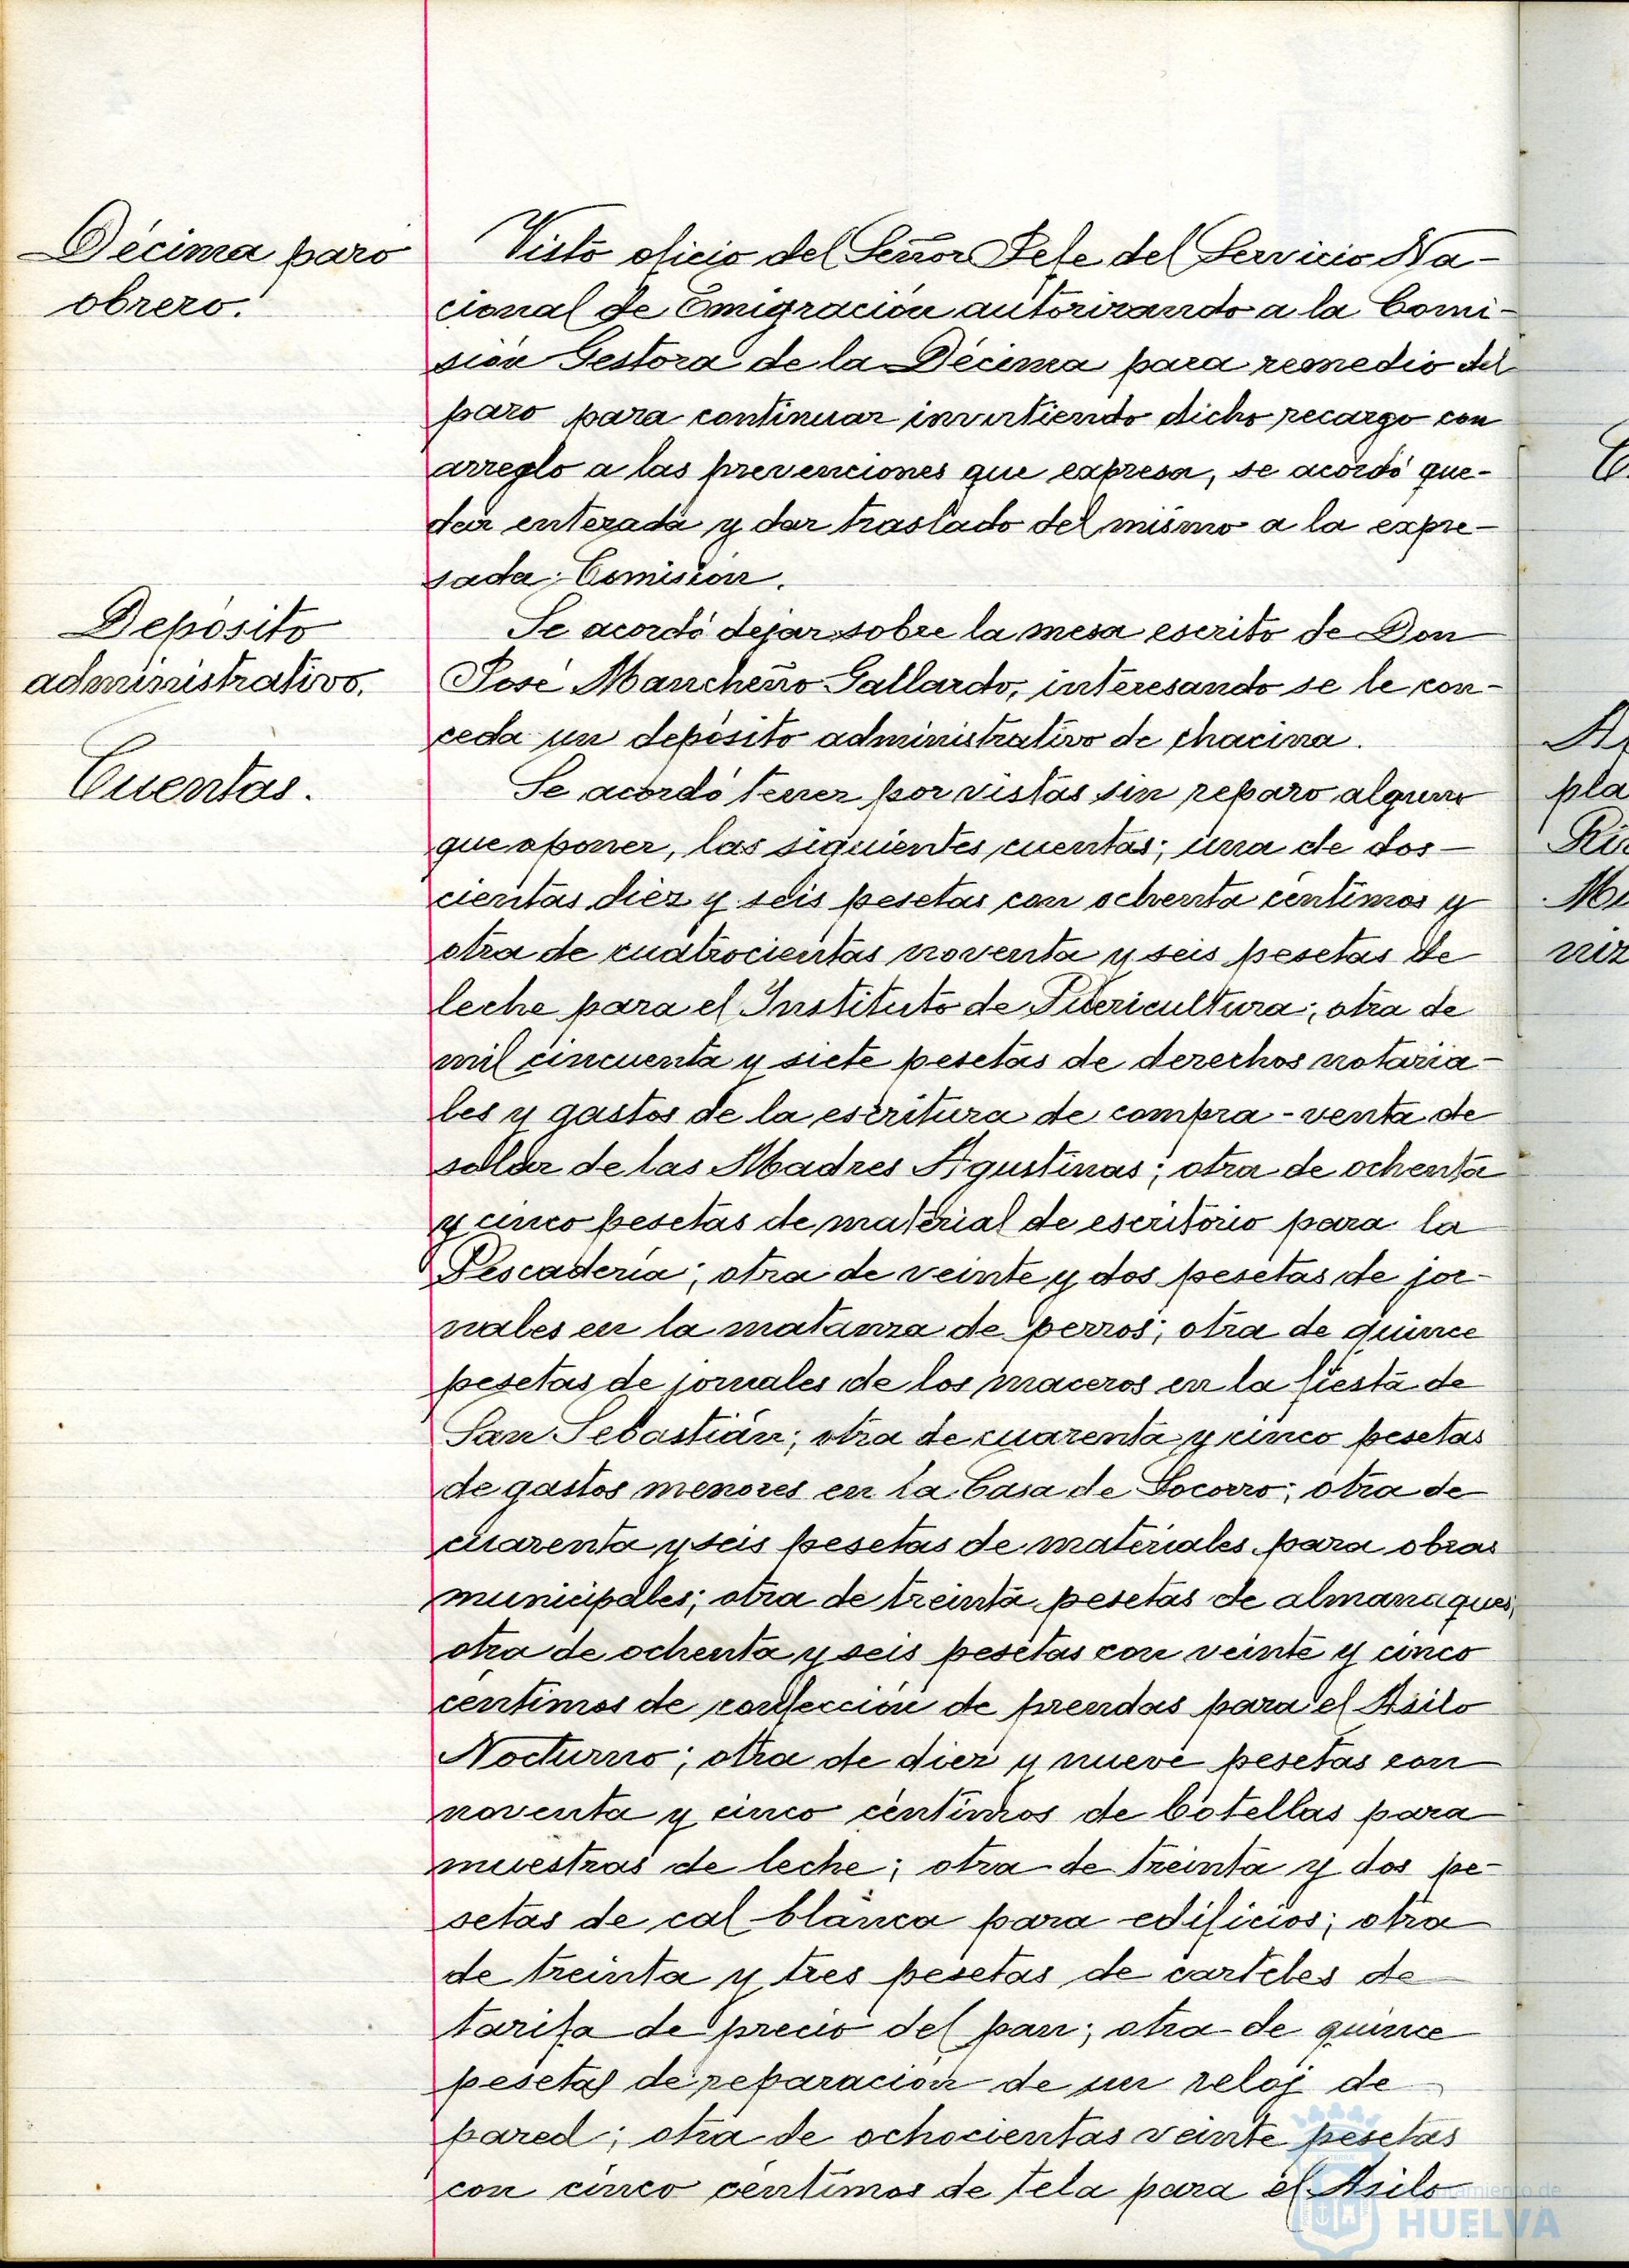 Décima paro
obrero.
Visto oficio del Señor Jefe del Servicio Na-
cional de Emigración autorizando a la Comi-
sión Gestora de la Décima para remedio del
paro para continuar invirtiendo dicho recargo con
arreglo a las prevenciones que expresa, se acordó que-
dar enterada y dar traslado del mismo a la expre-
sada Comisión.
Depósito
administrativo.
Se acordó dejar sobre la mesa escrito de Don
José Mancheño Gallardo, interesando se le con-
ceda un depósito administrativo de chacina.
Cuentas.
Se acordó tener por vistas sin reparo alguno
que oponer, las siguientes cuentas; una de dos-
cientas diez y seis pesetas con ochenta céntimos y
otra de cuatrocientas noventa y seis pesetas de
leche para el Instituto de Puericultura; otra de
mil cincuenta y siete pesetas de derechos notaria-
les y gastos de la escritura de compra-venta de
solar de las Madres Agustinas; otra de ochenta
y cinco pesetas de material de escritorio para la
Pescadería; otra de veinte y dos pesetas de jor-
nales en la matanza de perros; otra de quince
pesetas de jornales de los maceros en la fiesta de
San Sebastián; otra de cuarenta y cinco pesetas
de gastos menores en la Casa de Socorro; otra de
cuarenta y seis pesetas de materiales para obras
municipales; otra de treinta pesetas de almanaques,
otra de ochenta y seis pesetas con veinte y cinco
centimos de confección de prendas para el Asilo
Nocturno; otra de diez y nueve pesetas con
noventa y cinco céntimos de botellas para
muestras de leche; otra de treinta y dos pe-
setas de cal blanca para edificios; otra
de treinta y tres pesetas de carteles de
tarifa de precio del pan; otra de quince
pesetas de reparación de un reloj de
pared; otra de ochocientas veinte pesetas
con cinco centimos de tela para el Asilo
HUELVA